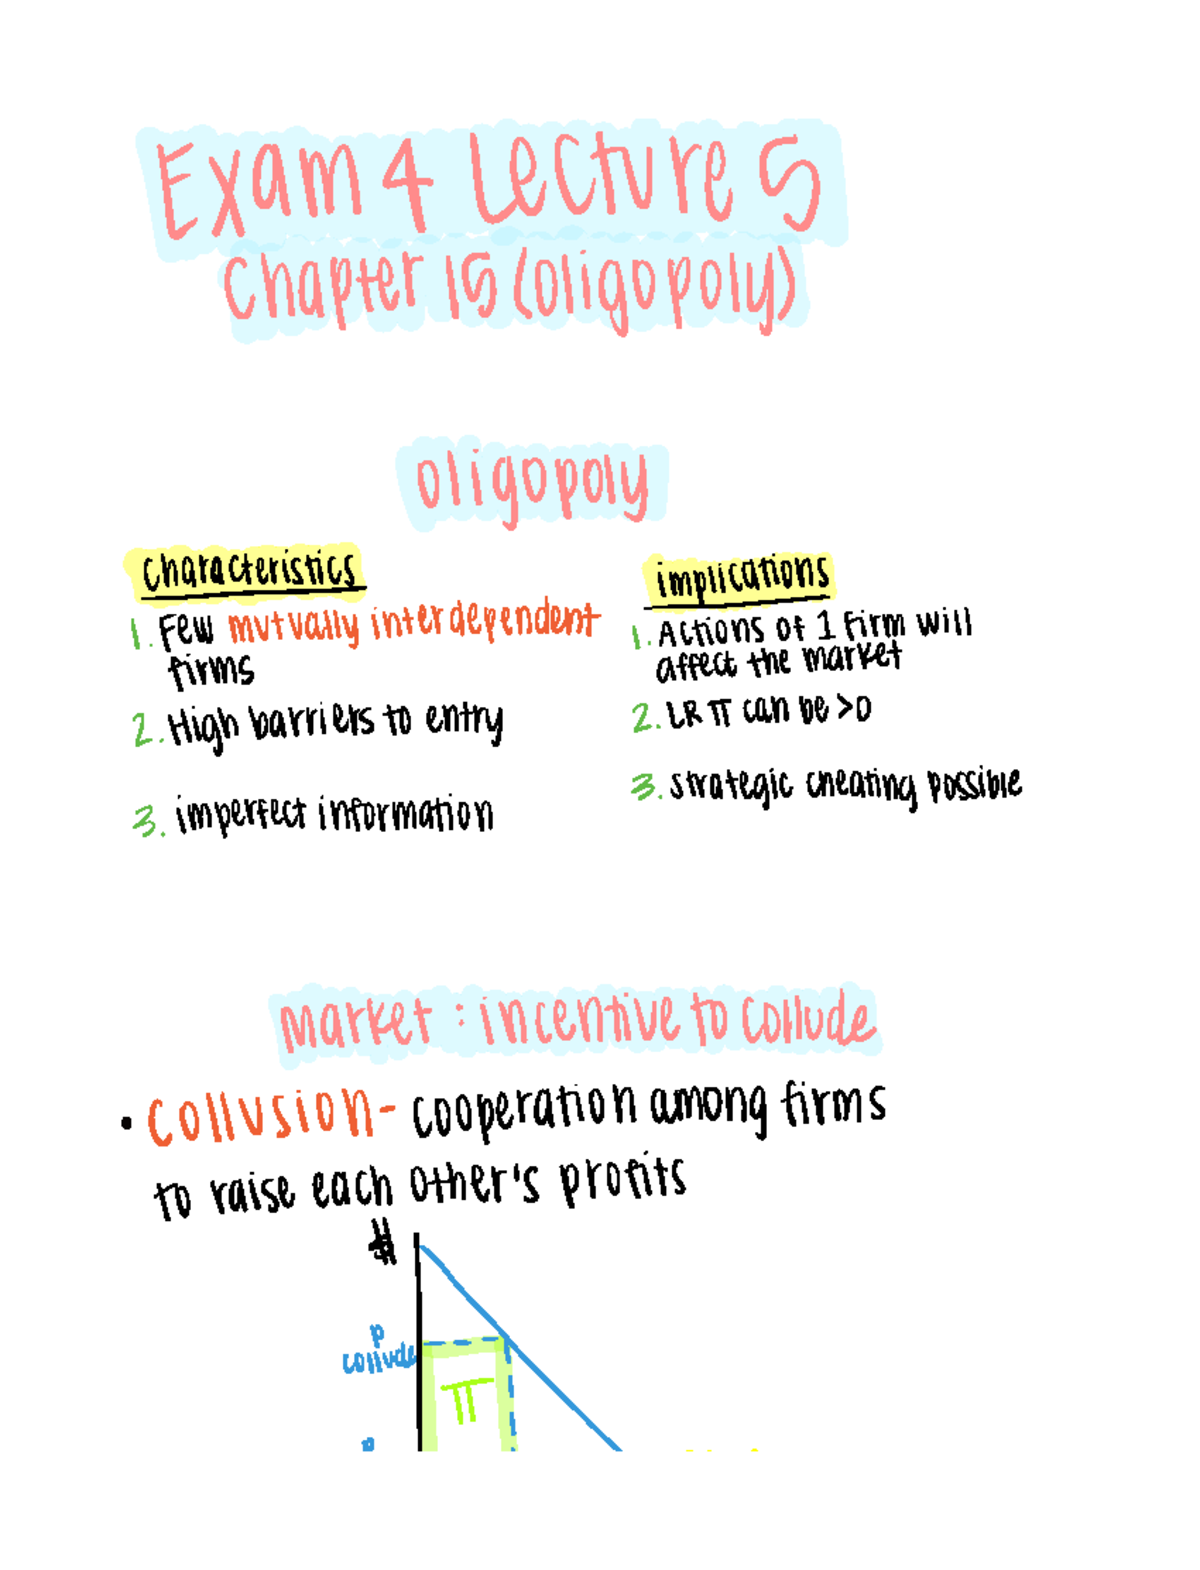 Exam 4 Lecture 5
Chapter 15 (oligopoly)
oligopoly
characteristics
1. Few mutually interdependent
firms
2. High barriers to entry
3. imperfect information
implications
1. Actions of 1 firm will
affect the market
2. LR π can be >0
3. strategic cheating possible
market : incentive to collude
• Collusion- cooperation among firms
to raise each other's profits
$
P
collude
π